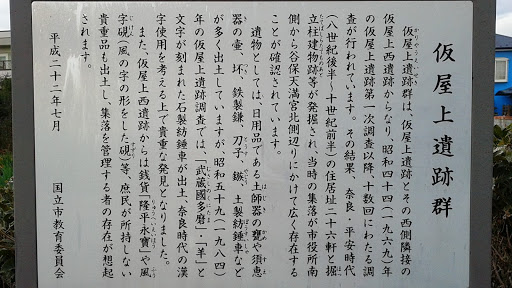 仮屋上遺跡群
仮屋上遺跡群は、仮屋上遺跡とその西側隣接の
仮屋上西遺跡からなり、昭和四十四（一九六九）年
の仮屋上遺跡第一次調査以降、十数回にわたる調
査が行われています。その結果、奈良・平安時代
（八世紀後半〜十世紀前半）の住居址二十六軒と掘
立柱建物跡等が発掘され、当時の集落が市役所南
側から谷保天満宮北側辺りにかけて広く存在する
ことが確認されています。
遺物としては、日用品である土師器の甕や須恵
器の壷、坏、鉄製鎌、刀子、鏃、土製紡錘車など
が多く出土していますが、昭和五十九（一九八四）
年の仮屋上遺跡調査では、「武蔵國多磨」・「羊」と
文字が刻まれた石製紡錘車が出土、奈良時代の漢
字使用を考える上で貴重な発見となりました。
また、仮屋上西遺跡からは銭貨「隆平永寶」や風
字硯（風の字の形をした硯）等、庶民が所持しない
貴重品も出土し、集落を管理する者の存在が想起
されます。
平成二十二年七月
国立市教育委員会